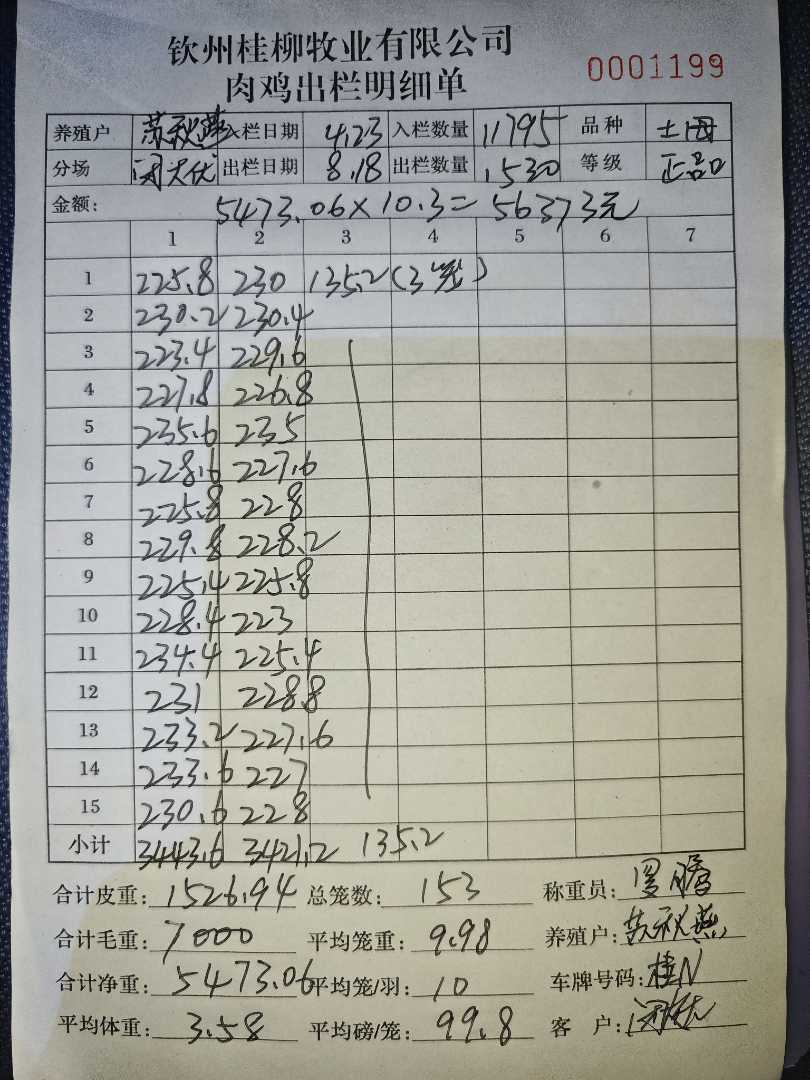 钦州桂柳牧业有限公司
肉鸡出栏明细单
0001199
养殖户 苏秋燕 入栏日期 4.23 入栏数量 11795 品种 土母
分场 出栏日期 8.18 出栏数量 1530 等级 正品
金额: 5473.06×10.3=56373元
1 2 3 4 5 6 7
1 225.8 230 135.2(3笼)
2 230.2 230.4
3 223.4 229.6
4 227.8 226.8
5 235.6 235
6 228.6 227.6
7 225.8 228
8 229.8 228.2
9 225.4 225.8
10 228.4 223
11 234.4 225.4
12 231 228.8
13 233.2 227.6
14 233.6 227
15 230.6 228
小计 3443.6 3421.2 135.2
合计皮重: 1526.94 总笼数: 153 称重员:
合计毛重: 7000 平均笼重: 9.98 养殖户: 苏秋燕
合计净重: 5473.06 平均笼/羽: 10 车牌号码: 桂N
平均体重: 3.58 平均磅/笼: 99.8 客户: